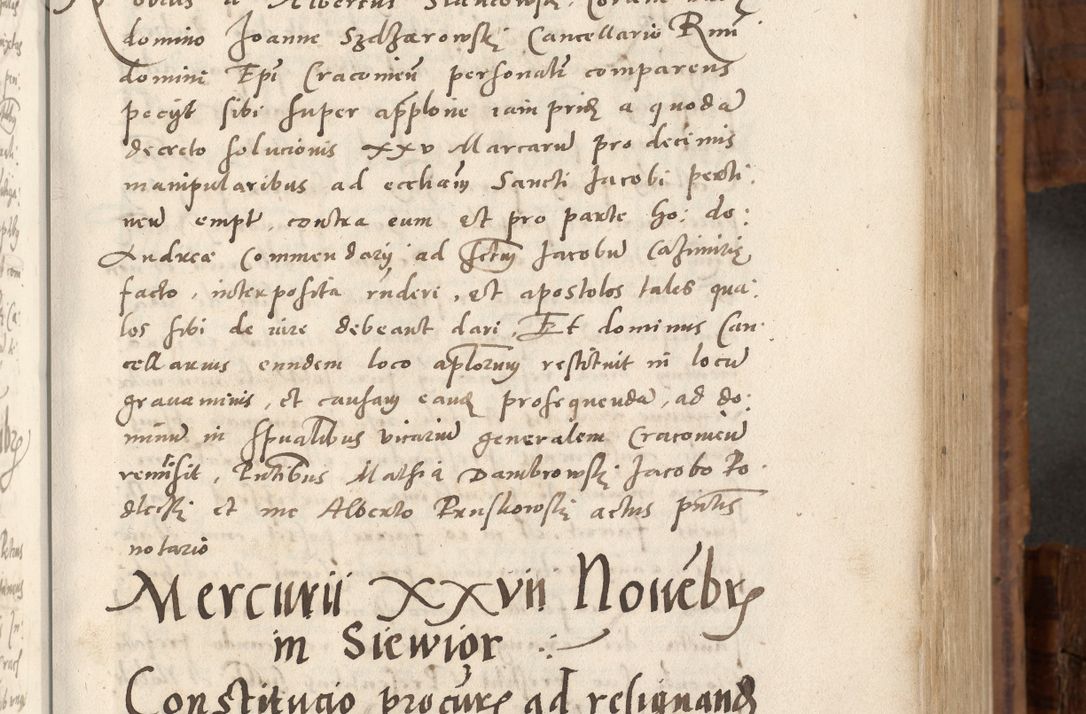 domino Joanne Szdzarowskj Cancellario Rmi
domini Epi Craconien personalit comparens
peciit sibi super applone iam prid a quoda
decreto solucionis xxv Marcaru pro decimis
manipularibus ad eccliam Sancti Jacobi perti:
neu empt, contra eum et pro parte ho: do:
Andreæ Commendarij ad sctum Jacobu Casimirie
facto, interposita rnderi, et apostolos tales qua:
los sibi de iure debeant dari, Et dominus Can:
cellarius eundem loco aplorum restituit in locu
grauaminis, et causam eand prosequenda, ad do:
minu in spualibus vicariu generalem Craconien
remisit, Pntibus Mathia Dambrowskj Jacobo Po:
dleskj et me Alberto Pruskowskj actus pntis
notario
Mercurii xxvii Nouebr
in Siewior
Constitucio procurs ad resignand